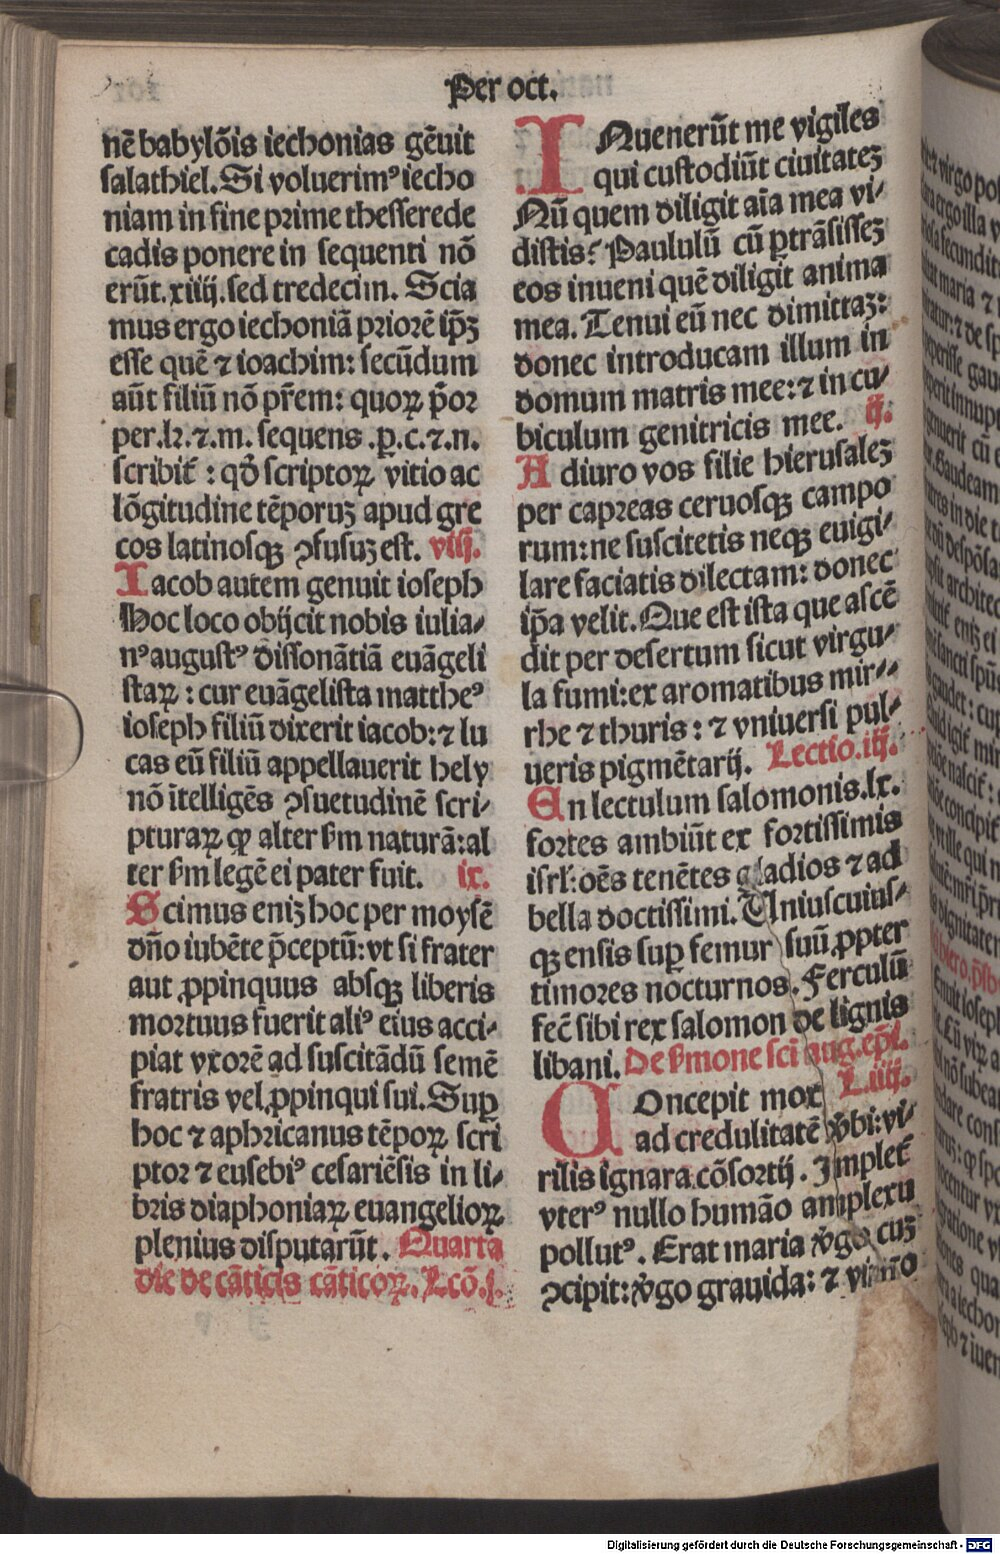 Per oct.
nē babylōis iechonias gēuit
salathiel. Si voluerimꝰ iecho
niam in fine prime thesserede
cadis ponere in sequenti nō
erūt. xiiij. sed tredecim. Scia
mus ergo iechoniā priorē ip̄ꝫ
esse quē ⁊ ioachim: secūdum
aūt filiū nō pr̄em: quoꝝ p̄or
per .k. ⁊ .m. sequens .ꝑ. c. ⁊ .n.
scribit᷑ : qð scriptoꝝ vitio ac
lōgitudine tēporuꝫ apud gre
cos latinosqꝫ ꝯfusuꝫ est. viij.
Iacob autem genuit ioseph
Hoc loco obijcit nobis iulia⸗
nꝰ augustꝰ dissonātiā euāgeli
staꝝ : cur euāgelista mattheꝰ
ioseph filiū dixerit iacob: ⁊ lu
cas eū filiū appellauerit hely
nō ītelligēs ꝯsuetudinē scri⸗
pturaꝝ ꝙ alter ẜm naturā: al
ter ẜm legē ei pater fuit. ix.
Scimus eniꝫ hoc per moysē
dn̄o iubēte p̄ceptū: vt si frater
aut ꝓpinquus absqꝫ liberis
mortuus fuerit aliꝰ eius acci⸗
piat vxorē ad suscitādū semē
fratris vel ꝓpinqui sui. Suꝑ
hoc ⁊ aphricanus tēpoꝝ scri
ptor ⁊ eusebiꝰ cesariēsis in li⸗
bris diaphoniaꝝ euangelioꝝ
plenius disputarūt. Quarta
die de cāticis cāticoꝝ. Lcō. j.
INuenerūt me vigiles
qui custodiūt ciuitateꝫ
Nū quem diligit aīa mea vi⸗
distis? Paululū cū ꝑtrāsisseꝫ
eos inueni quē diligit anima
mea. Tenui eū nec dimittaꝫ:
donec introducam illum in
domum matris mee: ⁊ in cu⸗
biculum genitricis mee. ij.
Adiuro vos filie hierusaleꝫ
per capreas ceruosqꝫ campo
rum: ne suscitetis neqꝫ euigi⸗
lare faciatis dilectam: donec
ip̄a velit. Que est ista que ascē
dit per desertum sicut virgu⸗
la fumi: ex aromatibus mir⸗
rhe ⁊ thuris: ⁊ vniuersi pul⸗
ueris pigmētarij. Lectio. iij.
En lectulum salomonis. lx.
fortes ambiūt ex fortissimis
isrl̄: oēs tenētes gladios ⁊ ad
bella doctissimi. Uniuscuius⸗
qꝫ ensis suꝑ femur suū ꝓpter
timores nocturnos. Ferculū
fec̄ sibi rex salomon de lignis
libani. De ẜmone sci aug. ep̄i.
L. iiij.
COncepit mox
ad credulitatē v̓bi: vi⸗
rilis ignara cōsortij. Implet᷑
vterꝰ nullo humāo amplexu
pollutꝰ. Erat maria v̓go cuꝫ
ꝯcipit: v̓go grauida: ⁊
Digitalisierung gefördert durch die Deutsche Forschungsgemeinschaft - DFG